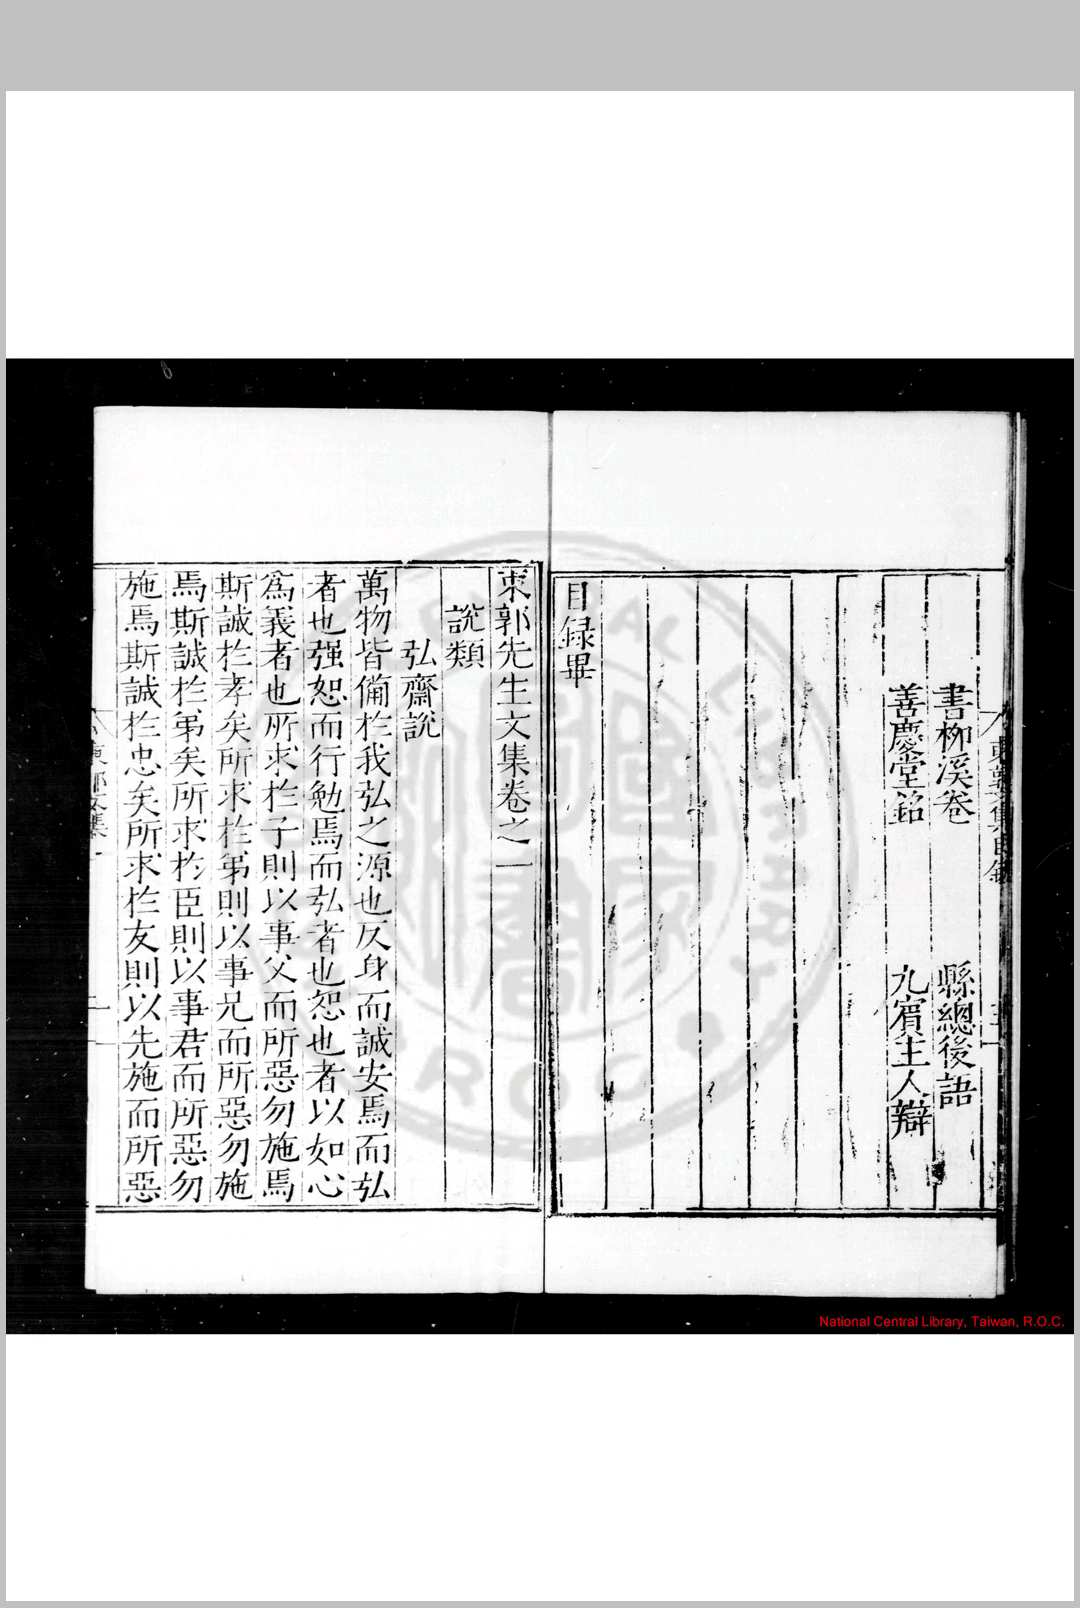 書柳溪卷　縣總後語
善慶堂銘　九賓主人辯
目録畢
東郭先生文集卷之一
說類
弘齋說
萬物皆備於我弘之源也反身而誠安焉而弘
者也强恕而行勉焉而弘者也恕也者以如心
為義者也所求於子則以事父而所惡勿施焉
斯誠於孝矣所求於弟則以事兄而所惡勿施
焉斯誠於弟矣所求於臣則以事君而所惡勿
施焉斯誠於忠矣所求於友則以先施而所惡
東郭文集
National Central Library, Taiwan, R.O.C.